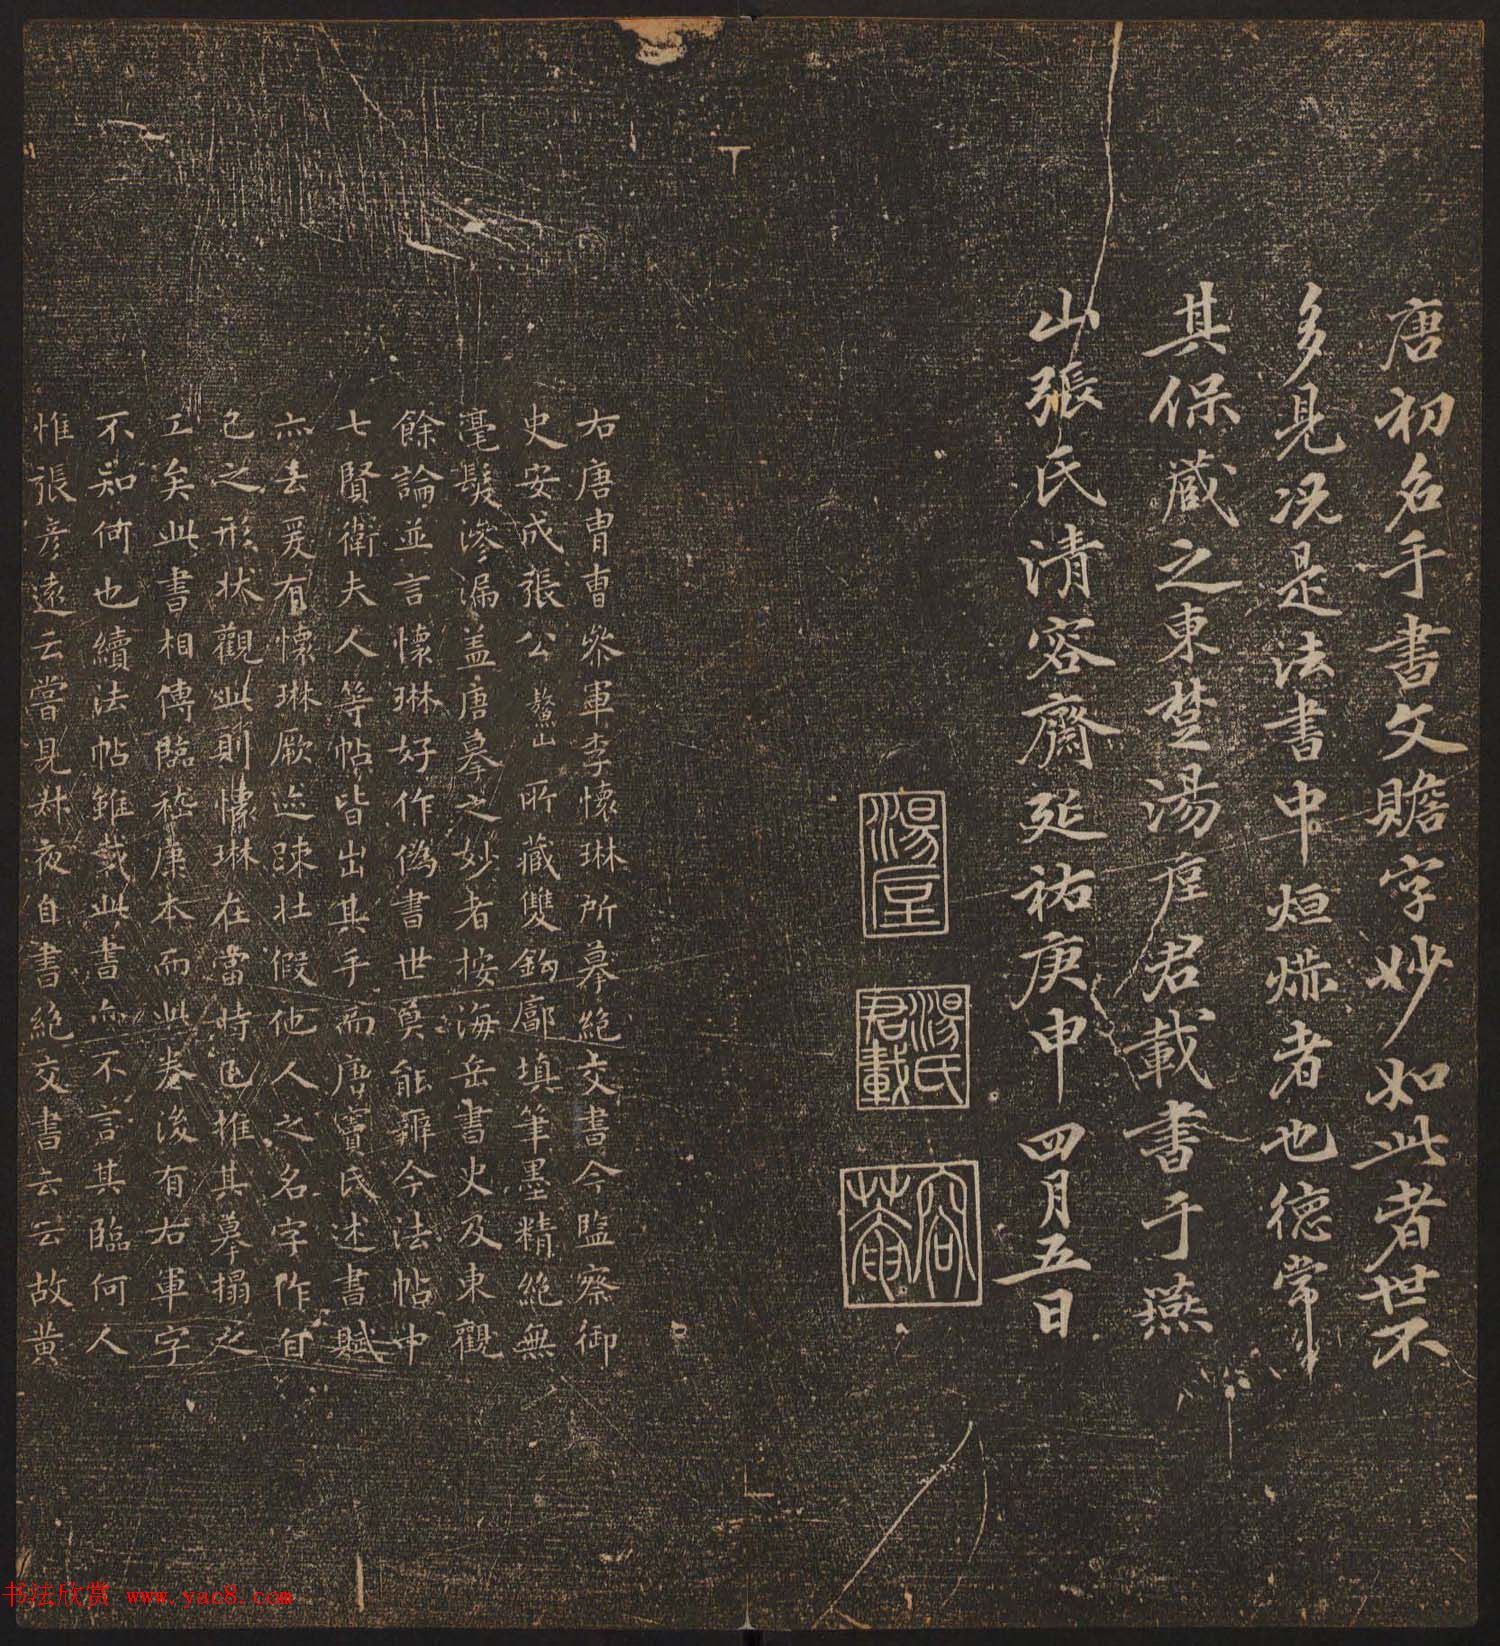 唐初名手書文贍字妙如此者世不
多見況是法書中烜爀者也德常
其保藏之東楚湯垕君載書于燕
山張氏清容齋延祐庚申四月五日
湯垕
湯氏君載
容菴
右唐胄曹叅軍李懷琳所摹絶交書今監察御
史安成張公鼇山所藏雙鉤廓填筆墨精絶無
毫髮滲漏盖唐摹之妙者按海岳書史及東觀
餘論並言懷琳好作僞書世莫能辯今法帖中
七賢衛夫人等帖皆出其手而唐竇氏述書賦
亦云爰有懷琳厥迹踈壯假他人之名字作自
己之形状觀此則懷琳在當時已推其摹搨之
工矣此書相傳臨嵇康本而此卷後有右軍字
不知何也續法帖雖載此書而不言其臨何人
惟張彦遠云嘗見叔夜自書絶交書云云故黄
书法欣赏 www.yac8.com